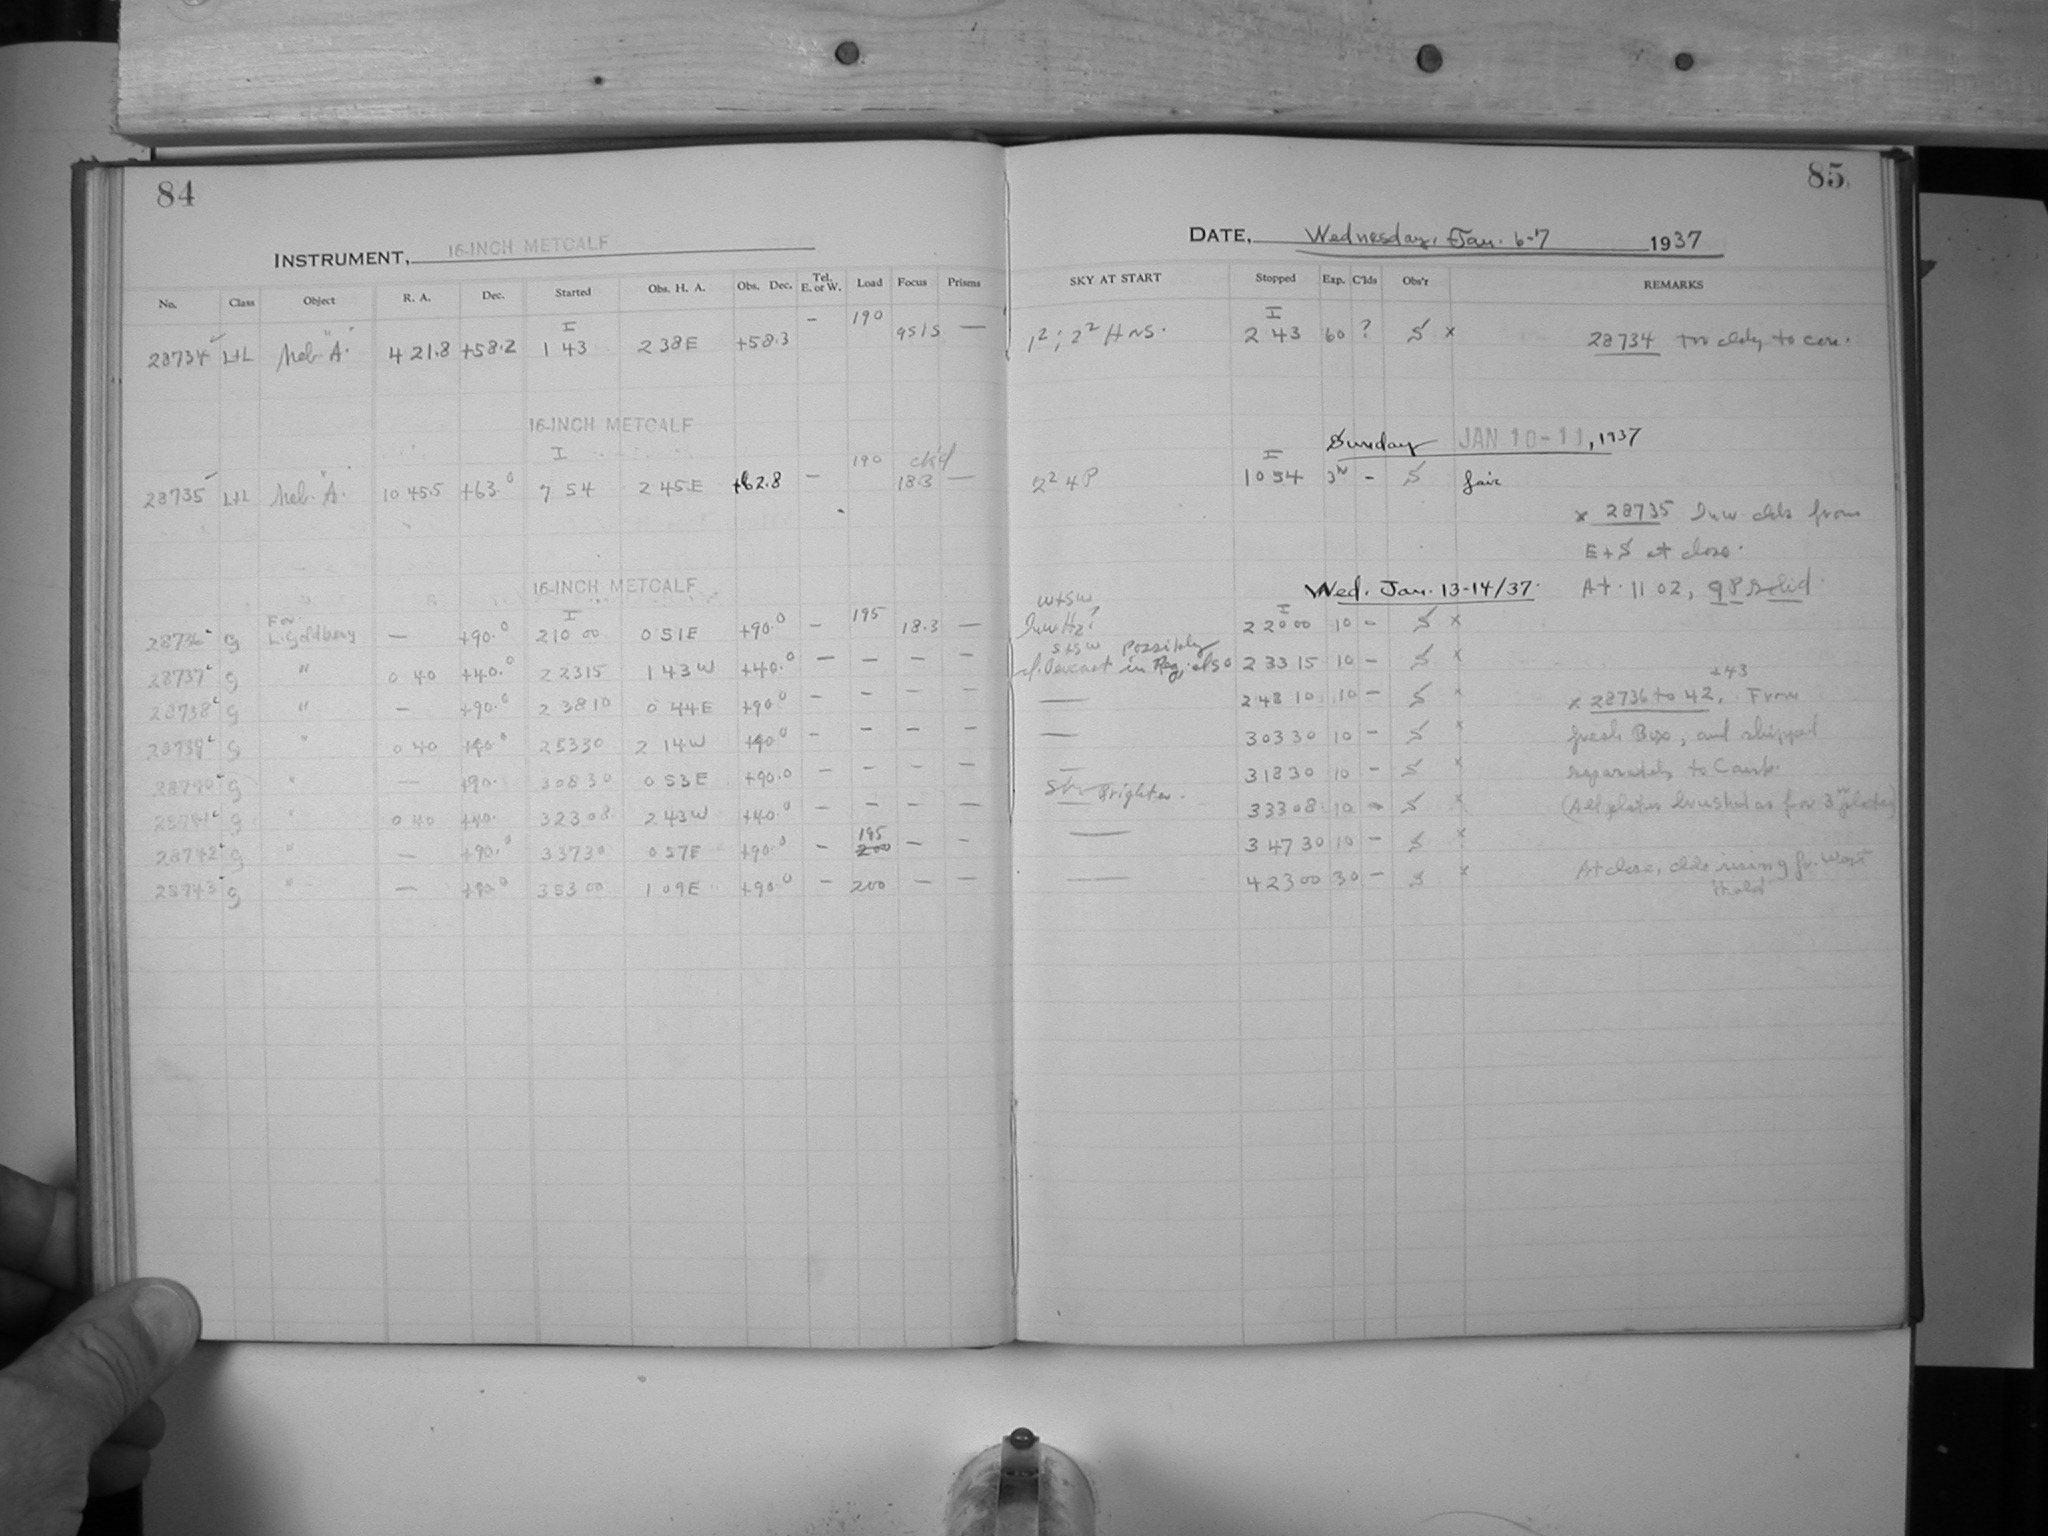 84
85
INSTRUMENT, 16-INCH METCALF
DATE, Wednesday, Jan. 6-7 1937
No. Class Object R. A. Dec. Started Obs. H. A. Obs. Dec. Tel. E. or W. Load Focus Prisms SKY AT START Stopped Exp. C'lds Obs'r REMARKS
28734 L+L Neb. "A". 4 21.8 +58.2 I 1 43 2 38E +58.3 — 190 9515 — 1²; 2² Hrs. I 2 43 60 ? S x 28734 Too cldy to con.
16-INCH METCALF
Sunday JAN 10-11, 1937
28735 L+L Neb. "A". 10 45.5 +63.0 I 7 54 2 45E +62.8 — 190 ck'd 18.3 — 2² 4P I 10 54 3ᴴ - S fair
x 28735 Low clds from
E+S at close.
16-INCH METCALF
Wed. Jan. 13-14/37. At 11 02, 9P solid.
28736 g For L. Goldberg — +90.0 I 2 10 00 0 51E +90.0 — 195 18.3 — W+SW Low Hz? I 2 20 00 10 - S x
28737 g " 0 40 +40.0 2 23 15 1 43W +40.0 — — — — S+SW Possibly in Reg, also 2 33 15 10 - S x
+43
28738 g " — +90.0 2 38 10 0 44E +90.0 — — — — — 2 48 10 10 - S x x 28736 to 42, From
28739 g " 0 40 +40.0 2 53 30 2 14W +40.0 — — — — — 3 03 30 10 - S x fresh Box, and shipped
28740 g " — +90. 3 08 30 0 53E +90.0 — — — — — 3 18 30 10 - S x separately to Camb.
28741 g " 0 40 +40. 3 23 08 2 43W +40.0 — — — — Sky Brighter. 3 33 08 10 - S x (All plates brushed as for 3ᴴ plates)
28742 g " — +90.0 3 37 30 0 57E +90.0 — 195 200 — — — 3 47 30 10 - S x
28743 g " — +90.0 3 53 00 1 09E +90.0 — 200 — — — 4 23 00 30 - S x At close, clds rising fr. West